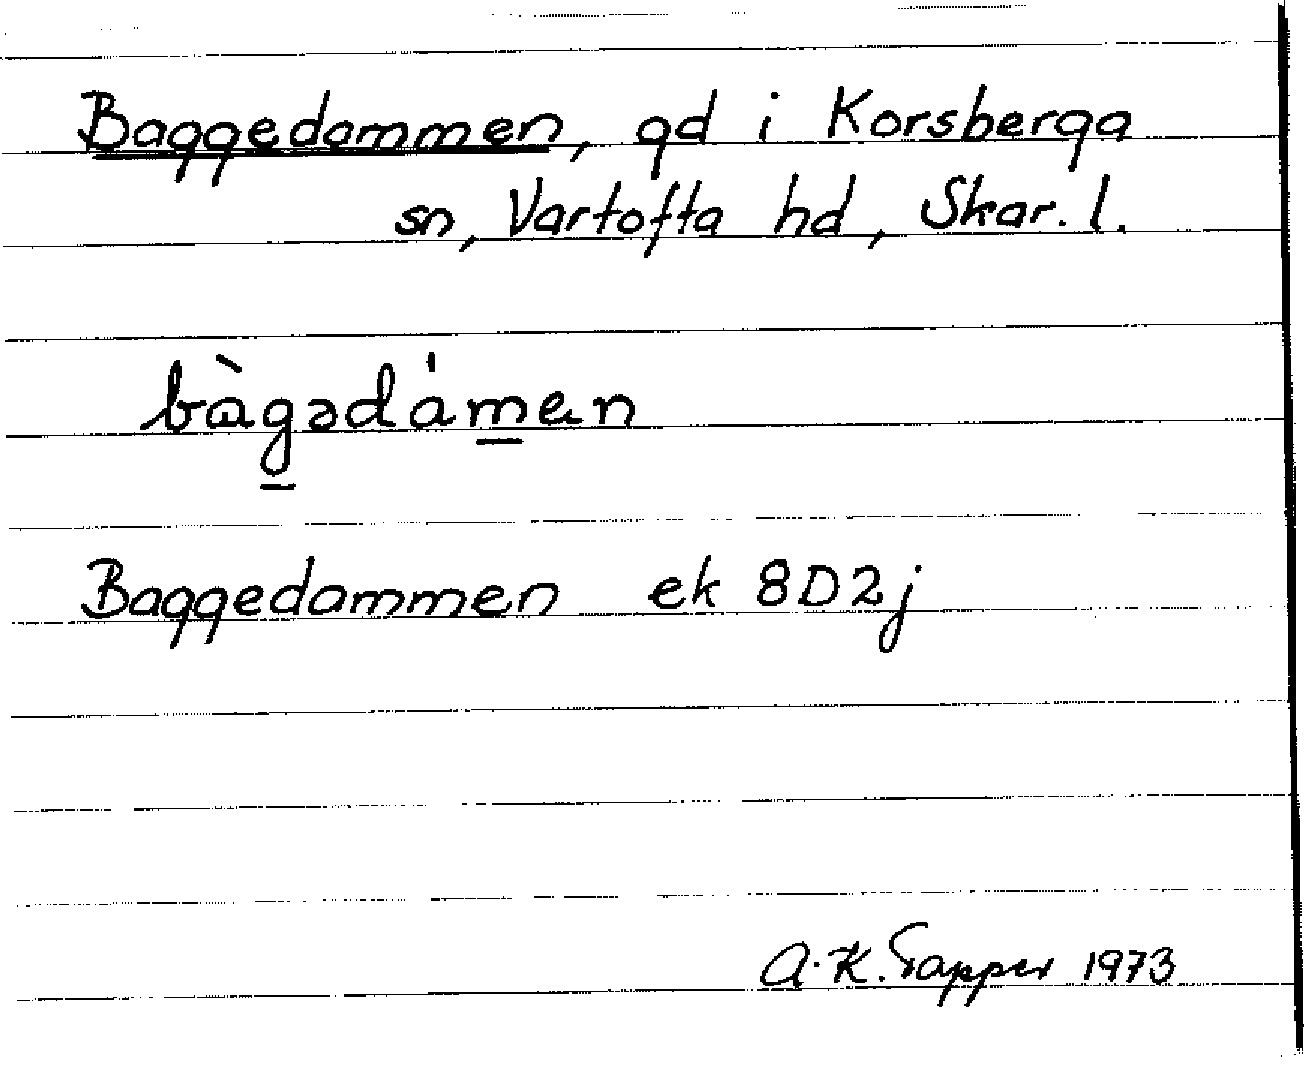 Baggedammen, gd i Korsberga
sn, Vartofta hd, Skar. l.
bàgədámen
Baggedammen ek 8D2j
A.K. Tapper 1973